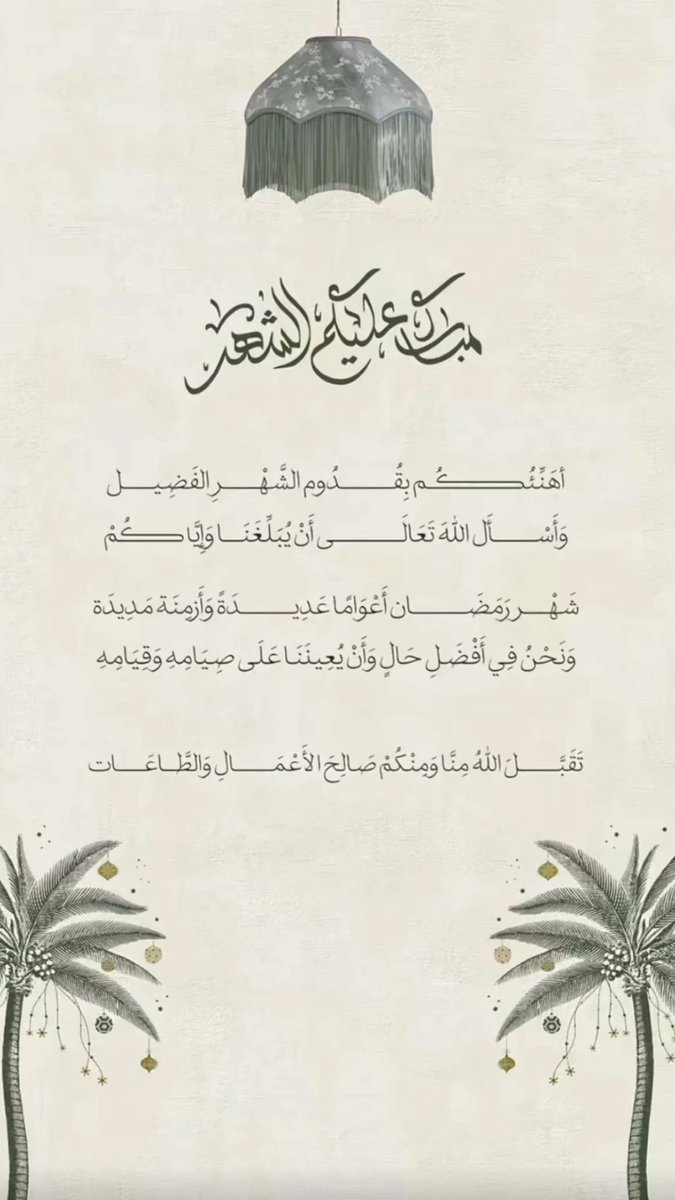 مبارك عليكم الشهر
أهَنِّئُكُم بِقُدُوم الشَّهْرِ الفَضِيل
وَأَسْأَل اللهَ تَعَالَى أَنْ يُبَلِّغَنَا وَإِيَّاكُمْ
شَهْر رَمَضَان أَعْوَامًا عَدِيدَةً وَأَزمِنَة مَدِيدَة
وَنَحْنُ فِي أَفْضَلِ حَالٍ وَأَنْ يُعِينَنَا عَلَى صِيَامِهِ وَقِيَامِهِ
تَقَبَّلَ اللهُ مِنَّا وَمِنْكُمْ صَالِحَ الأَعْمَالِ وَالطَّاعَات